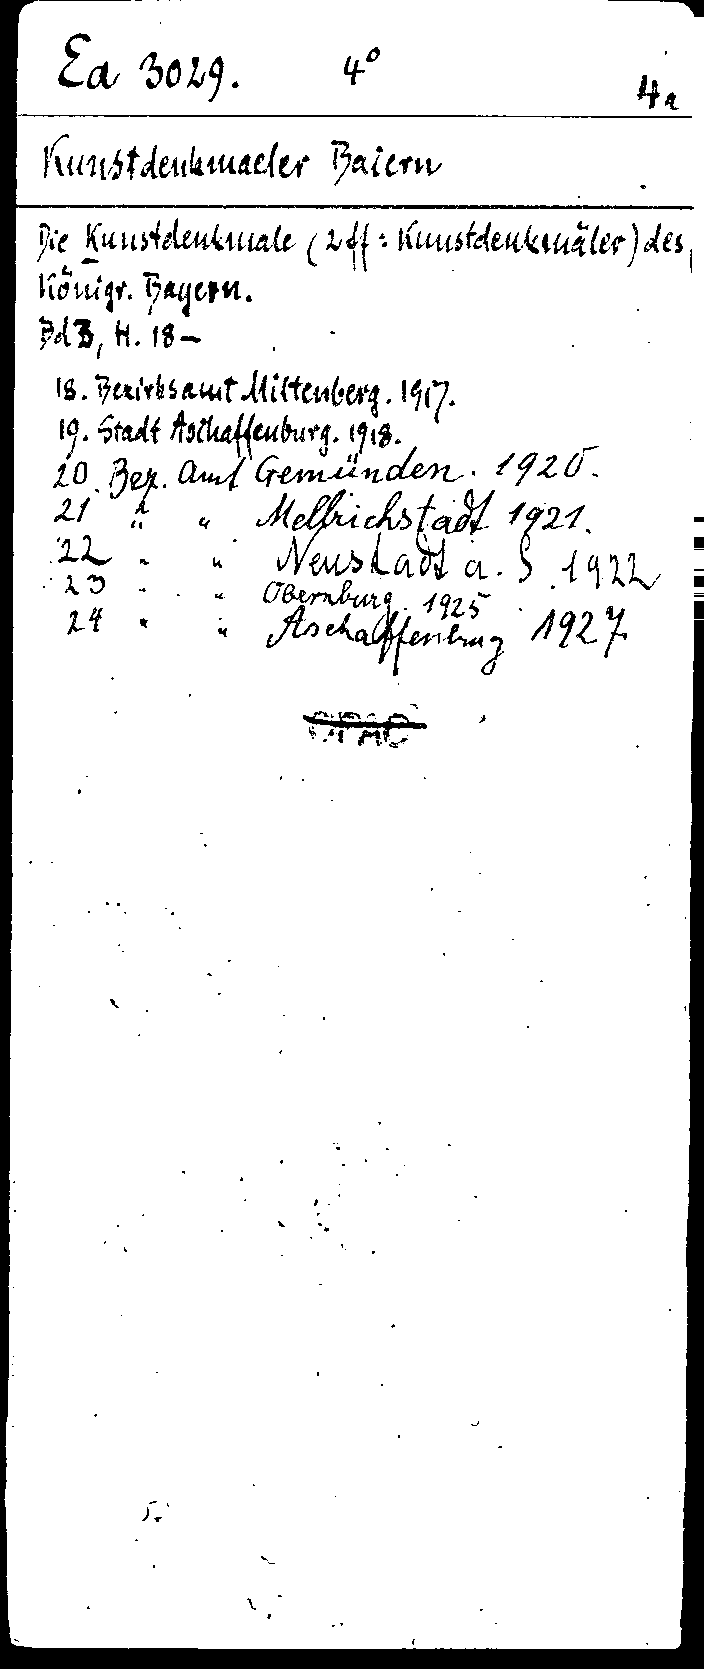 Ea 3029. 4° 4a
Kunstdenkmaeler Baiern
Die Kunstdenkmale (2ff: Kunstdenkmäler) des
Königr. Bayern.
Bd 3, H. 18–
18. Bezirksamt Miltenberg. 1917.
19. Stadt Aschaffenburg. 1918.
20. Bez. Amt Gemünden. 1920.
21 " " Mellrichstadt 1921.
22 " " Neustadt a. S. 1922
23 " " Obernburg 1925
24 " " Aschaffenburg 1927.
OPAC